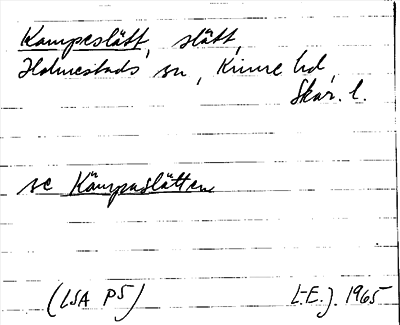 Kampeslätt, slätt,
Holmestads sn, Kinne hd,
Skar. l.
se Kämpaslätten
(LSA P5) L.E.J. 1965